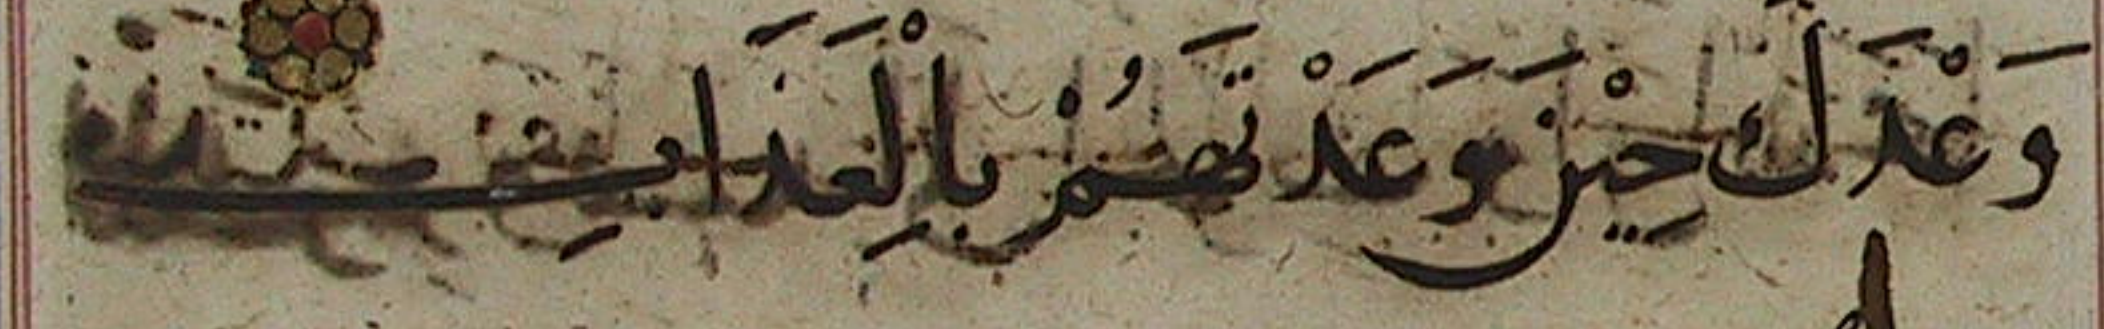 وَعْدَكَ حِيْنَ وَعَدْتَهُمْ بِالْعَذَابِ